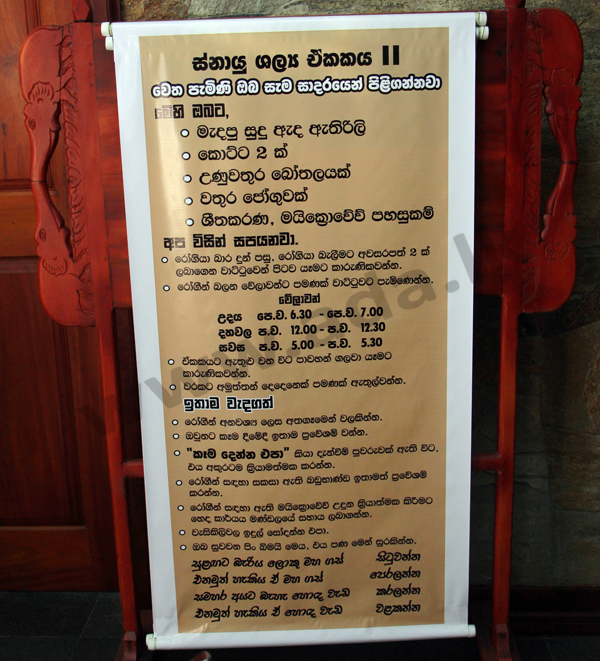 ස්නායු ශල්‍ය ඒකකය II
වෙත පැමිණි ඔබ සැම සාදරයෙන් පිළිගන්නවා
මෙහි ඔබට,
මැදපු සුදු ඇද ඇතිරිලි
කොට්ට 2 ක්
උණුවතුර බෝතලයක්
වතුර ජෝගුවක්
ශීතකරණ, මයික්‍රොවේව් පහසුකම්
අප විසින් සපයනවා.
රෝගියා බාර දුන් පසු, රෝගියා බැලීමට අවසරපත් 2 ක්
ලබාගෙන වාට්ටුවෙන් පිටව යෑමට කාරුණිකවන්න.
රෝගීන් බලන වේලාවන්ට පමණක් වාට්ටුවට පැමිණෙන්න.
වේලාවන්
උදය පෙ.ව. 6.30 - පෙ.ව. 7.00
දහවල ප.ව. 12.00 - ප.ව. 12.30
සවස ප.ව. 5.00 - ප.ව. 5.30
ඒකකයට ඇතුළු වන විට පාවහන් ගලවා යෑමට
කාරුණිකවන්න.
වරකට අමුත්තන් දෙදෙනෙක් පමණක් ඇතුල්වන්න.
ඉතාම වැදගත්
රෝගීන් අනවශ්‍ය ලෙස අතගෑමෙන් වලකින්න.
ඔවුනට කෑම දීමේදී ඉතාම ප්‍රවේශම් වන්න.
"කෑම දෙන්න එපා" කියා දැන්වීම් පුවරුවක් ඇති විට,
එය අකුරටම ක්‍රියාත්මක කරන්න.
රෝගීන් සඳහා සකසා ඇති බඩුභාණ්ඩ ඉතාමත් ප්‍රවේශම්
කරන්න.
රෝගීන් සඳහා ඇති මයික්‍රොවේව් උදුන ක්‍රියාත්මක කිරීමට
හෙද කාර්යය මණ්ඩලයේ සහාය ලබාගන්න.
වැසිකිළිවල ඉඳුල් සෝදන්න එපා.
ඔබ සුවවන පිං බිමයි මෙය, එය පණ මෙන් සුරකින්න.
සුළඟට බැරිය ලොකු මහ ගස් සිටුවන්න
එනමුත් හැකිය ඒ මහ ගස් පෙරලන්න
සමහර අයට බැහැ හොඳ වැඩ කරලන්න
එනමුත් හැකිය ඒ හොඳ වැඩ වළකන්න